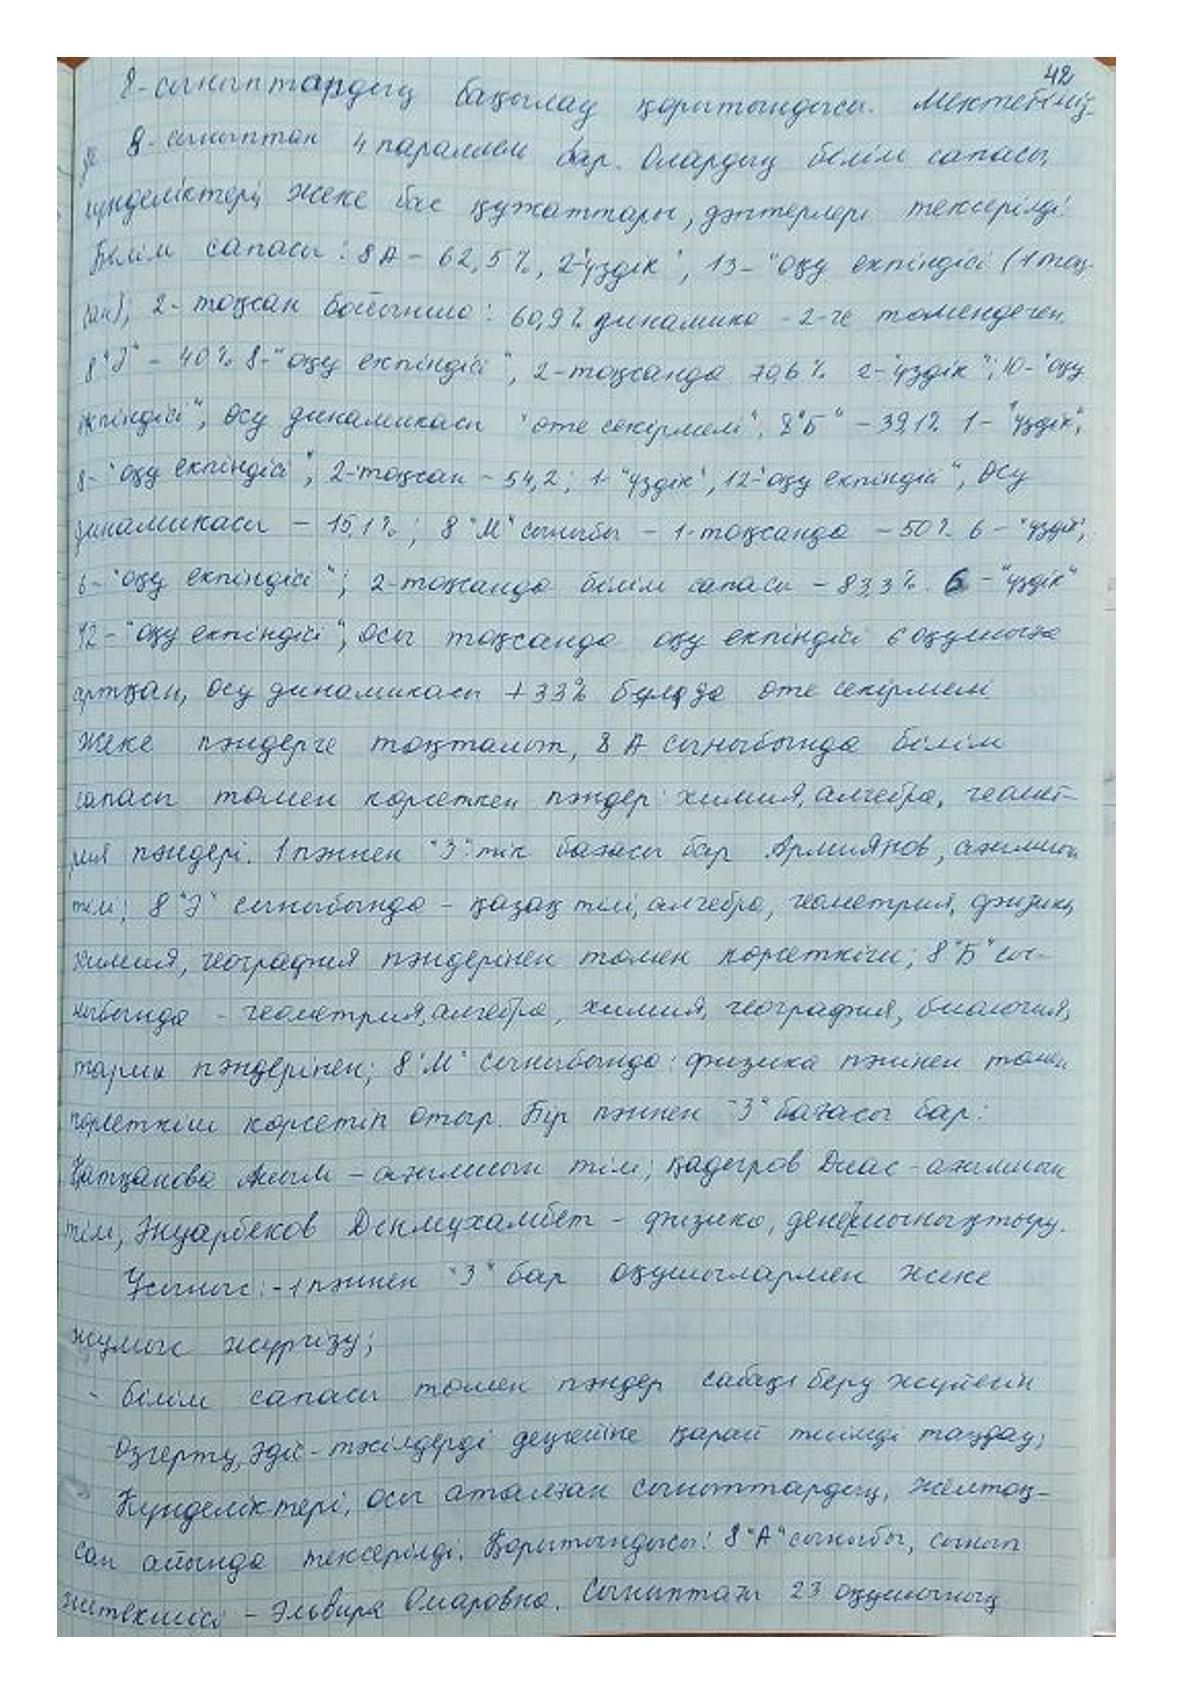 42
8-сыныптардың бақылау қорытындысы. Мектебіміз-
де 8-сыныптан 4 параллем бар. Олардың білім сапасы,
күнделіктері, жеке бас құжаттары, дәптерлері тексерілді.
Білім сапасы: 8А – 62,5%, 2-"үздік", 13-"оқу екпіндісі (1 тоқ-
сан); 2-тоқсан бойынша: 60,9% динамика -2-ге төмендеген.
8"Ә" – 40% 8-"оқу екпіндісі", 2-тоқсанда 70,6% 2-"үздік"; 10-"оқу
екпіндісі", өсу динамикасы "өте секірмелі". 8"Б" – 39,1% 1-"үздік",
8-"оқу екпіндісі", 2-тоқсан – 54,2; 1-"үздік", 12-"оқу екпіндісі", өсу
динамикасы – 15,1%; 8"М" сыныбы – 1-тоқсанда – 50% 6-"үздік",
6-"оқу екпіндісі"; 2-тоқсанда білім сапасы – 83,3%. 6-"үздік"
12-"оқу екпіндісі", осы тоқсанда оқу екпіндісі 6 оқушыға
артқан, өсу динамикасы +33% бұлда өте секірмелі.
Жеке пәндерге тоқталып, 8 А сыныбында білім
сапасы төмен көрсеткен пәндер: химия, алгебра, геомет-
рия пәндері. 1 пәннен "3"-тік бағасы бар Армиянов, ағылшын
тілі; 8"Ә" сыныбында – қазақ тілі, алгебра, геометрия, физика,
химия, география пәндерінен төмен көрсеткіш; 8"Б" сы-
ныбында – геометрия, алгебра, химия, география, биология,
тарих пәндерінен; 8"М" сыныбында: физика пәнінен төмен
көрсеткіш көрсетіп отыр. Бір пәннен "3" бағасы бар:
– ағылшын тілі; Қадыров Диас – ағылшын
тілі, Жуарбеков Дінмухамбет – физика, дене шынықтыру.
Ұсыныс: - 1 пәннен "3" бар оқушылармен жеке
жұмыс жүргізу;
- білім сапасы төмен пәндер сабақ беру жүйесін
өзгерту, әдіс-тәсілдерді деңгейіне қарай тиімді таңдау;
Күнделіктері, осы аталған сыныптардың, желтоқ-
сан айында тексерілді. Қорытындысы: 8"А" сыныбы, сынып
жетекшісі – Эльвира Омаровна. Сыныптағы 23 оқушының